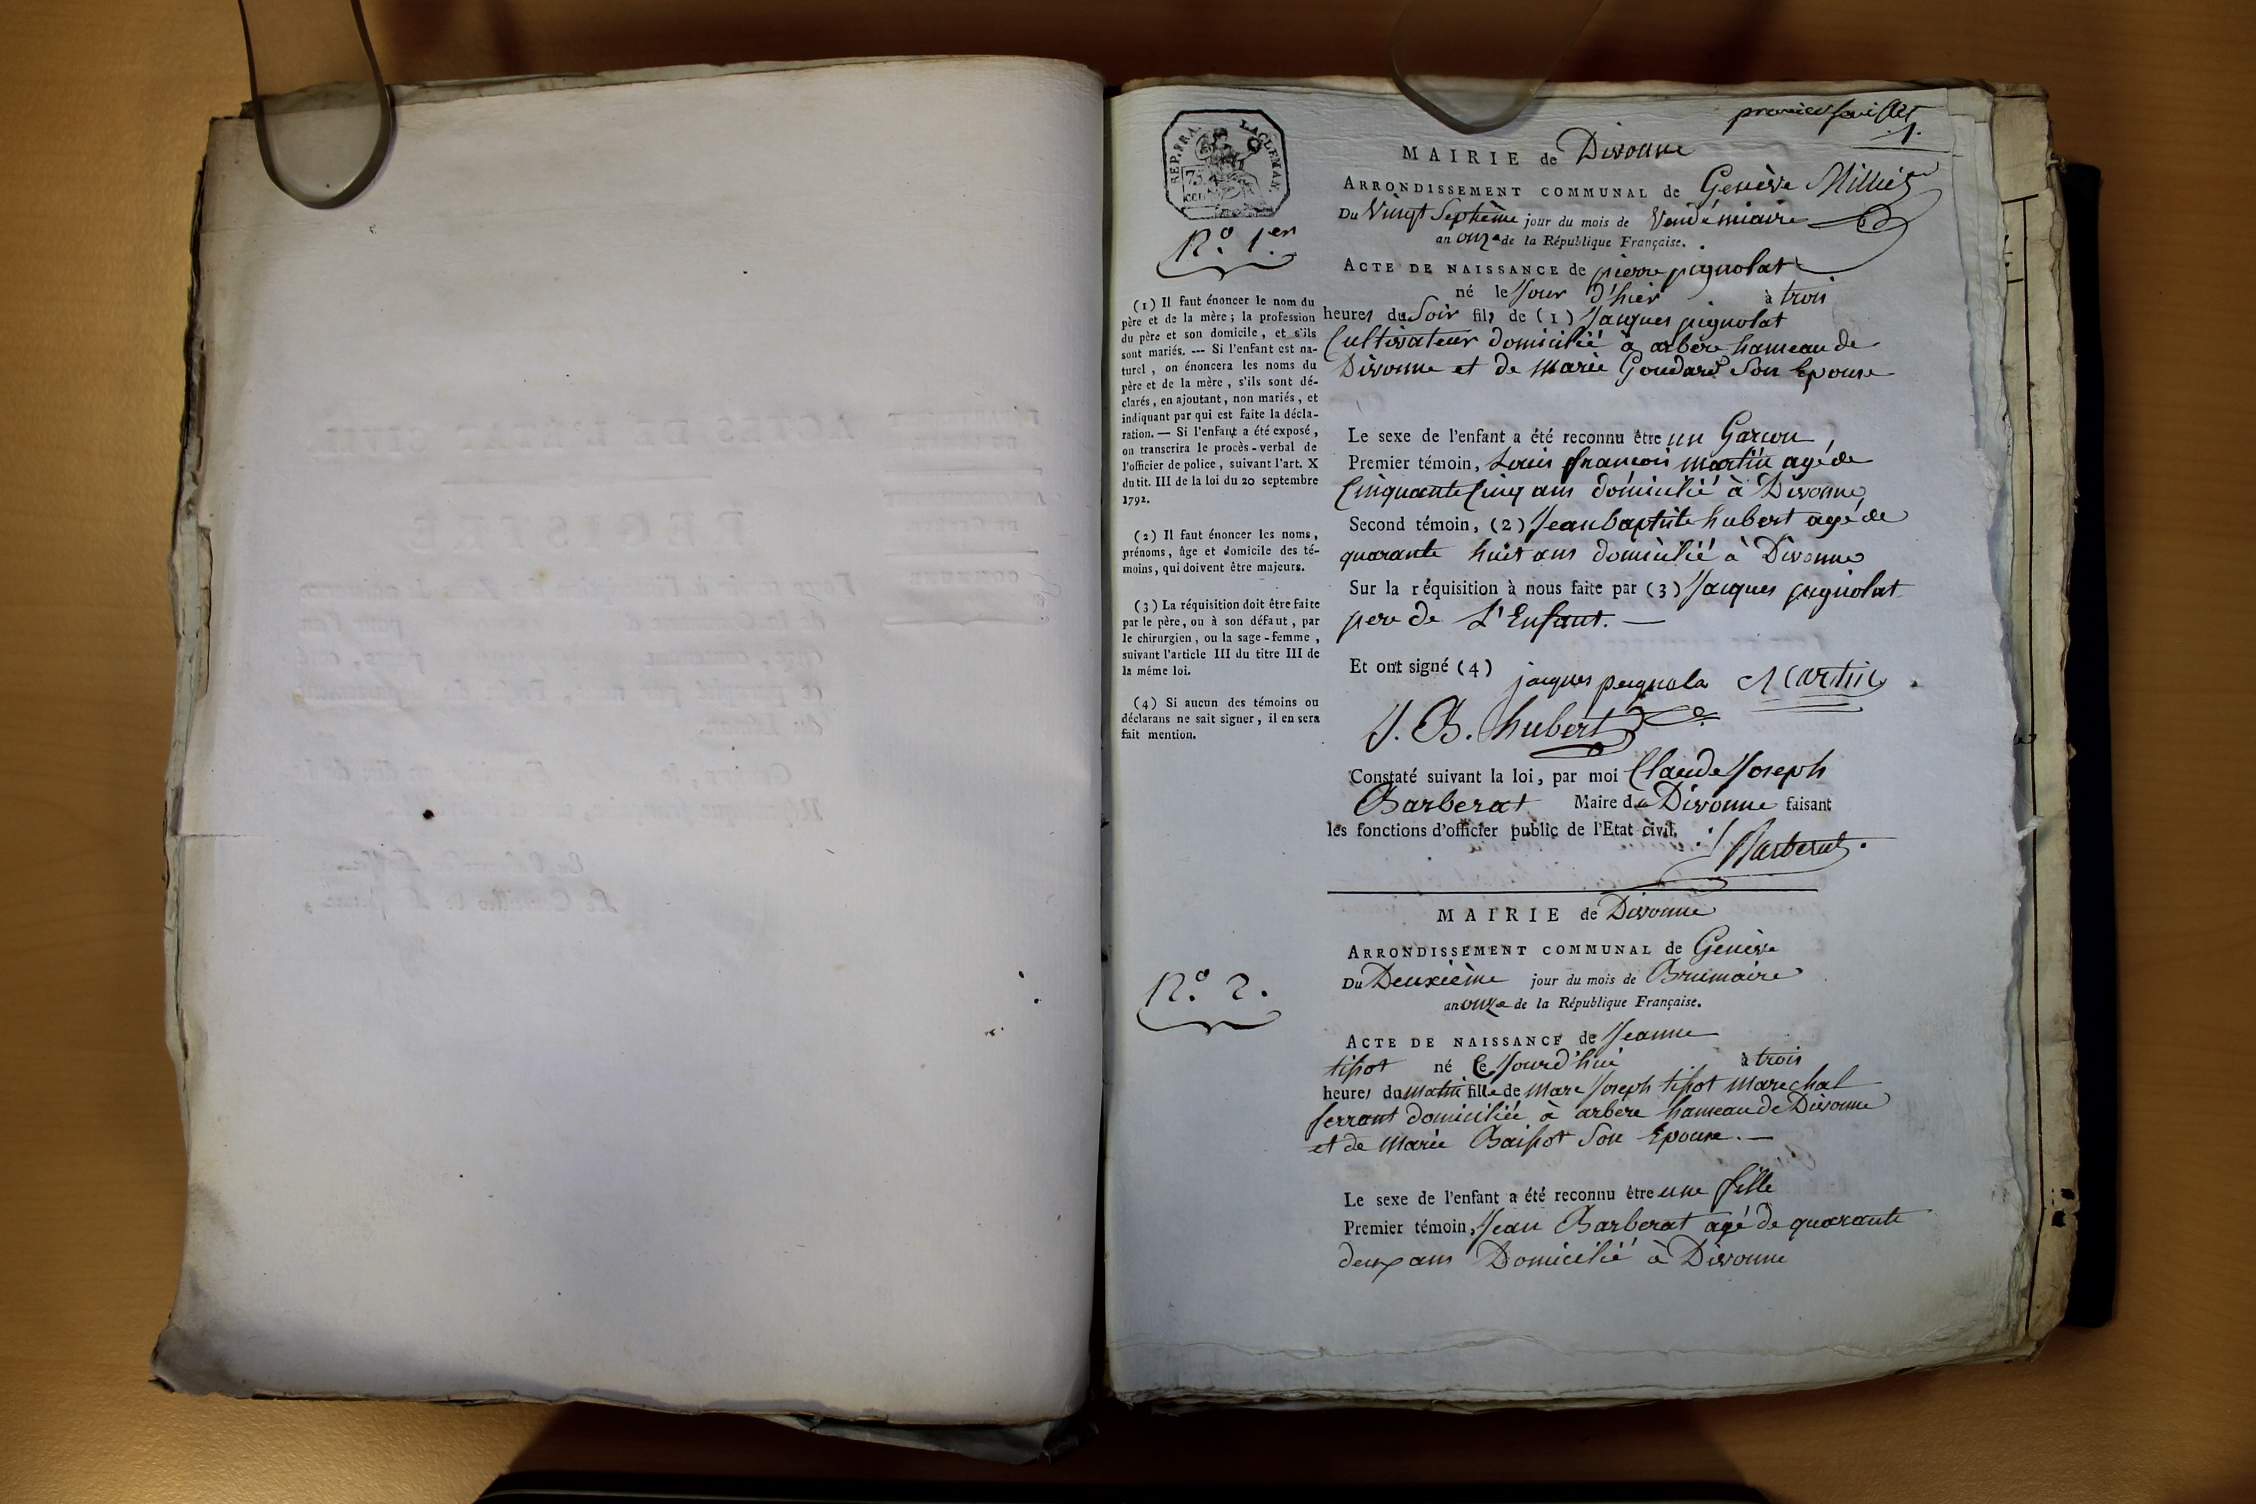 premier feuillet
1.
REP. FRA.
75
MAIRIE de Divonne
ARRONDISSEMENT COMMUNAL de Genève
Du Vingt Septième jour du mois de Vendémiaire
an onze de la République Française.
N.o 1.er
ACTE DE NAISSANCE de pierre pignolat
né le Jour d'hier à trois
heures du Soir fils de (1) Jacques pignolat
Cultivateur domicilié à arbère hameau de
Divonne et de Marie Goudard Son Epouse
Le sexe de l'enfant a été reconnu être un Garçon,
Premier témoin, Louis françois Martin agé de
Cinquante Cinq ans domicilié à Divonne,
Second témoin, (2) Jean baptiste hubert agé de
quarante huit ans domicilié à Divonne
Sur la réquisition à nous faite par (3) Jacques pignolat
pere de L'Enfant. —
Et ont signé (4)
jacques pegnola Martin
J. B. hubert
Constaté suivant la loi, par moi Claude Joseph
Barberat Maire de Divonne faisant
les fonctions d'officier public de l'Etat civil.
Barberat.
(1) Il faut énoncer le nom du
père et de la mère ; la profession
du père et son domicile, et s'ils
sont mariés. --- Si l'enfant est na-
turel, on énoncera les noms du
père et de la mère, s'ils sont dé-
clarés, en ajoutant, non mariés, et
indiquant par qui est faite la décla-
ration. — Si l'enfant a été exposé,
on transcrira le procès-verbal de
l'officier de police, suivant l'art. X
du tit. III de la loi du 20 septembre
1792.
(2) Il faut énoncer les noms,
prénoms, âge et domicile des té-
moins, qui doivent être majeurs.
(3) La réquisition doit être faite
par le père, ou à son défaut, par
le chirurgien, ou la sage-femme,
suivant l'article III du titre III de
la même loi.
(4) Si aucun des témoins ou
déclarans ne sait signer, il en sera
fait mention.
MAIRIE de Divonne
ARRONDISSEMENT COMMUNAL de Genève
Du Deuxième jour du mois de Brumaire
an onze de la République Française.
N.o 2.
ACTE DE NAISSANCE de Jeanne
tissot né Ce Jourd'hui à trois
heures du matin fille de Marc Joseph tissot Marechal
ferrant domiciliée à arbère hameau de Divonne
et de Marie Son Epouse. —
Le sexe de l'enfant a été reconnu être une fille
Premier témoin, Jean Barberat agé de quarante
deux ans Domicilié à Divonne